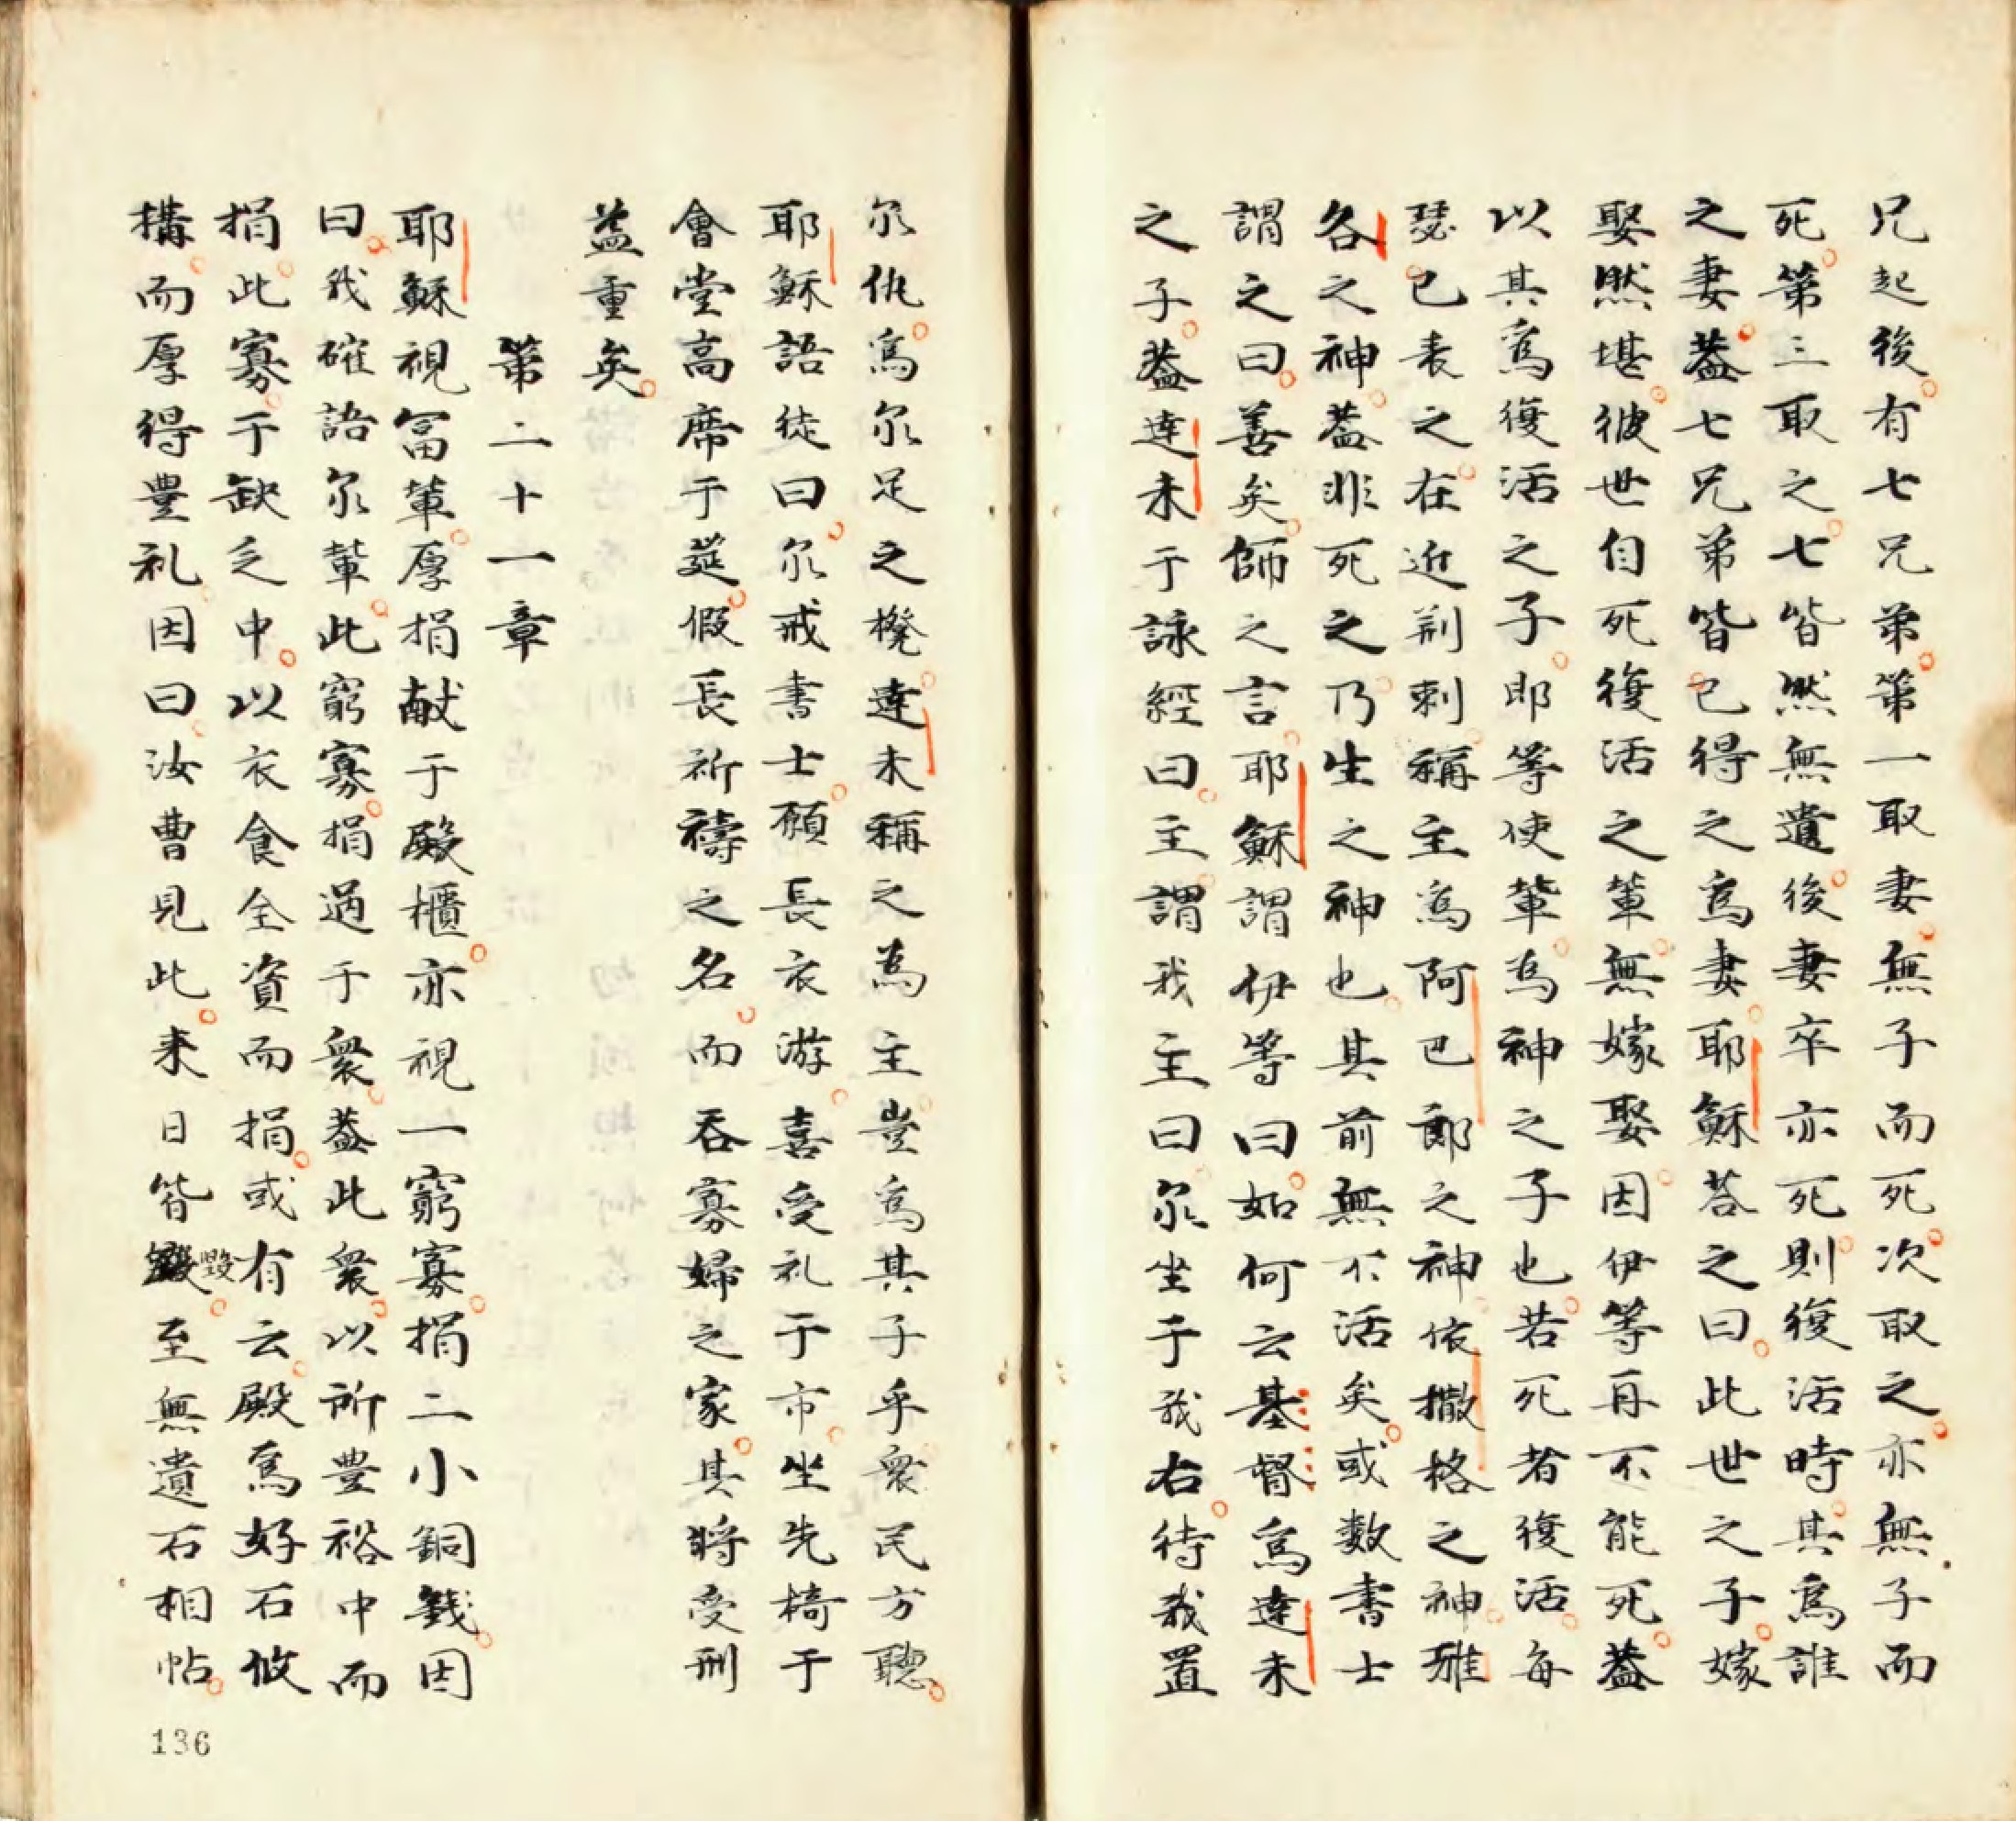 兄起後有七兄弟第一取妻無子而死次取之亦無子而
死第三取之七皆然無遺後妻卒亦死則復活時其為誰
之妻蓋七兄弟皆已得之為妻耶穌荅之曰此世之子嫁
娶然堪彼世自死復活之輩無嫁娶因伊等再不能死蓋
以其為復活之子即等使輩為神之子也若死者復活每
瑟已表之在近荊刺稱主為阿巴郎之神依撒格之神雅
各之神蓋非死之乃生之神也其前無不活矣或数書士
謂之曰善矣師之言耶穌謂伊等曰如何云基督為達未
之子蓋達未于詠經曰主謂我主曰尔坐于我右待我置
尔仇為尔足之櫈達未稱之為主豈為其子乎衆民方聽
耶穌語徒曰尔戒書士願長衣游喜受礼于市坐先椅于
會堂高席于莚假長祈禱之名而吞寡婦之家其將受刑
益重矣
第二十一章
耶穌視冨輩厚捐献于殿櫃亦視一窮寡捐二小銅錢因
曰我確語尔輩此窮寡捐過于衆蓋此衆以所豊裕中而
捐此寡于缺乏中以衣食全資而捐或有云殿為好石攸
搆而厚得豊礼因曰汝曹見此来日皆毀至無遺石相帖
136